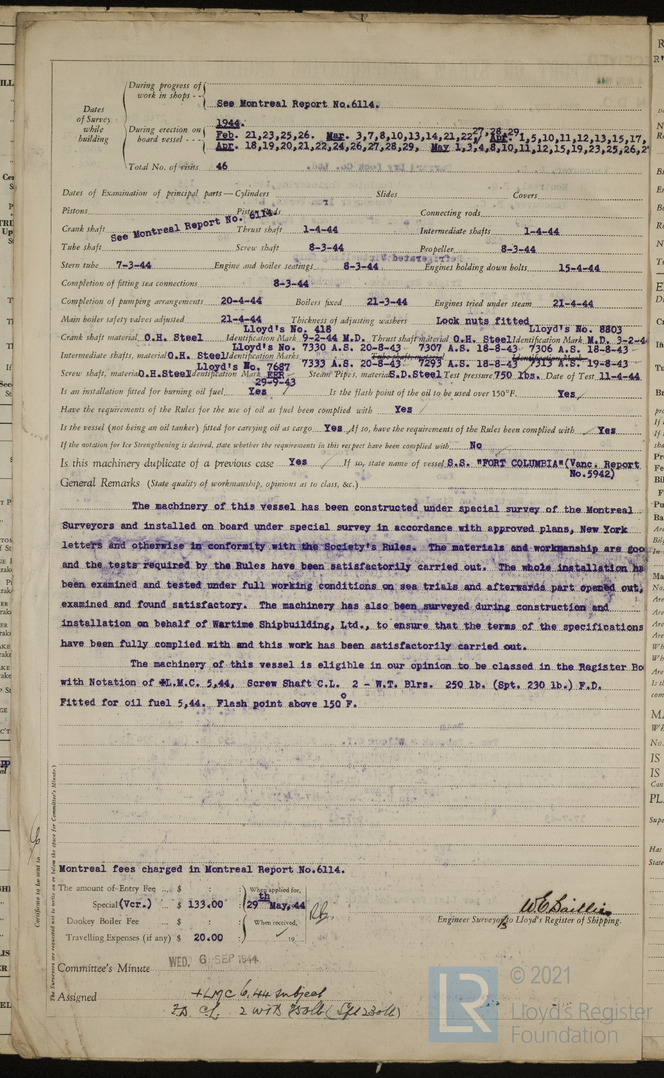 During progress of
work in shops - -
See Montreal Report No.6114.
Dates
of Survey
while
building
1944.
During erection on
board vessel - - -
Feb. 21,23,25,26. Mar. 3,7,8,10,13,14,21,22,27,28,29. Apr. 1,5,10,11,12,13,15,17,
Apr. 18,19,20,21,22,24,26,27,28,29, May 1,3,4,8,10,11,12,15,19,23,25,26,2
Total No. of visits 46
Dates of Examination of principal parts—Cylinders Slides Covers
Pistons Piston Rods Connecting rods
Crank shaft See Montreal Report No. 6114. Thrust shaft 1-4-44 Intermediate shafts 1-4-44
Tube shaft Screw shaft 8-3-44 Propeller 8-3-44
Stern tube 7-3-44 Engine and boiler seatings 8-3-44 Engines holding down bolts 15-4-44
Completion of fitting sea connections 8-3-44
Completion of pumping arrangements 20-4-44 Boilers fixed 21-3-44 Engines tried under steam 21-4-44
Main boiler safety valves adjusted 21-4-44 Thickness of adjusting washers Lock nuts fitted
Lloyd's No. 418 Lloyd's No. 8803
Crank shaft material O.H. Steel Identification Mark 9-2-44 M.D. Thrust shaft material O.H. Steel Identification Mark M.D. 3-2-4
Lloyd's No. 7330 A.S. 20-8-43 7307 A.S. 18-8-43 7306 A.S. 18-8-43
Intermediate shafts, material O.H. Steel Identification Marks 7333 A.S. 20-8-43 7293 A.S. 18-8-43 7313 A.S. 19-8-43
Lloyd's No. 7687
Screw shaft, material O.H.Steel Identification Mark Steam Pipes, material S.D.Steel Test pressure 750 lbs. Date of Test 11-4-44
29-9-43
Is an installation fitted for burning oil fuel Yes Is the flash point of the oil to be used over 150°F. Yes
Have the requirements of the Rules for the use of oil as fuel been complied with Yes
Is the vessel (not being an oil tanker) fitted for carrying oil as cargo Yes If so, have the requirements of the Rules been complied with Yes
If the notation for Ice Strengthening is desired, state whether the requirements in this respect have been complied with No
Is this machinery duplicate of a previous case Yes If so, state name of vessel S.S. "FORT COLUMBIA"(Vanc. Report
No.5942)
General Remarks (State quality of workmanship, opinions as to class, &c.)
The machinery of this vessel has been constructed under special survey of the Montreal
Surveyors and installed on board under special survey in accordance with approved plans, New York
letters and otherwise in conformity with the Society's Rules. The materials and workmanship are goo
and the tests required by the Rules have been satisfactorily carried out. The whole installation ha
been examined and tested under full working conditions on sea trials and afterwards part opened out,
examined and found satisfactory. The machinery has also been surveyed during construction and
installation on behalf of Wartime Shipbuilding, Ltd., to ensure that the terms of the specifications
have been fully complied with and this work has been satisfactorily carried out.
The machinery of this vessel is eligible in our opinion to be classed in the Register Bo
with Notation of +L.M.C. 5,44, Screw Shaft C.L. 2 - W.T. Blrs. 250 lb. (Spt. 230 lb.) F.D.
Fitted for oil fuel 5,44. Flash point above 150°F.
Montreal fees charged in Montreal Report No.6114.
The amount of Entry Fee ... $ : : When applied for,
Special (Vcr.) $ 133.00 29th May, 44
Donkey Boiler Fee $ : : When received,
Travelling Expenses (if any) $ 20.00 19
W.E. Baillie
Engineer Surveyor to Lloyd's Register of Shipping.
Committee's Minute WED. 6 SEP 1944
Assigned +LMC 6,44 subject
FD CL 2 WTB 250lb (Spt 230lb)
© 2021
LR
Lloyd's Register
Foundation